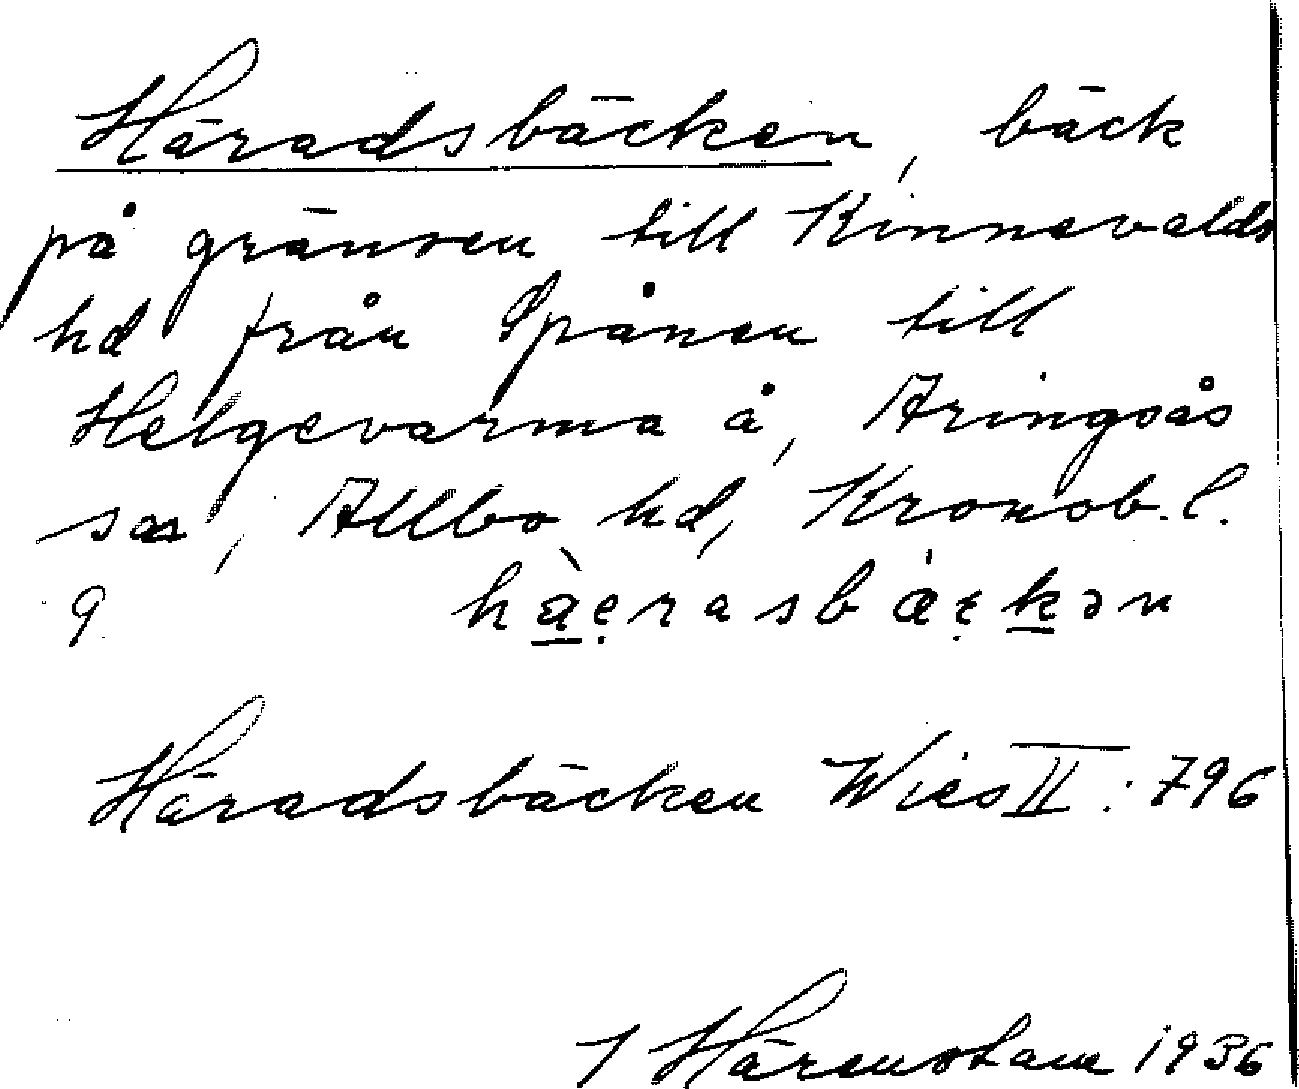 Häradsbäcken, bäck
på gränsen till Kinnevalds
hd från Spånen till
Helgevarma å, Aringsås
sn, Allbo hd, Kronob. l.
9
Häradsbäcken Wies II: 796
J Härenstam 1936